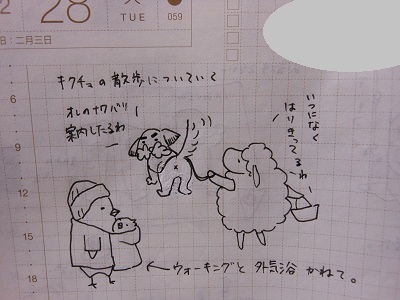 28
TUE
059
日：二月三日
キクチョの散歩についていく
オレのナワバリ
案内したるわ
いつになく
はりきってるわー
6
9
12
15
18
←ウォーキングと外気浴かねて。